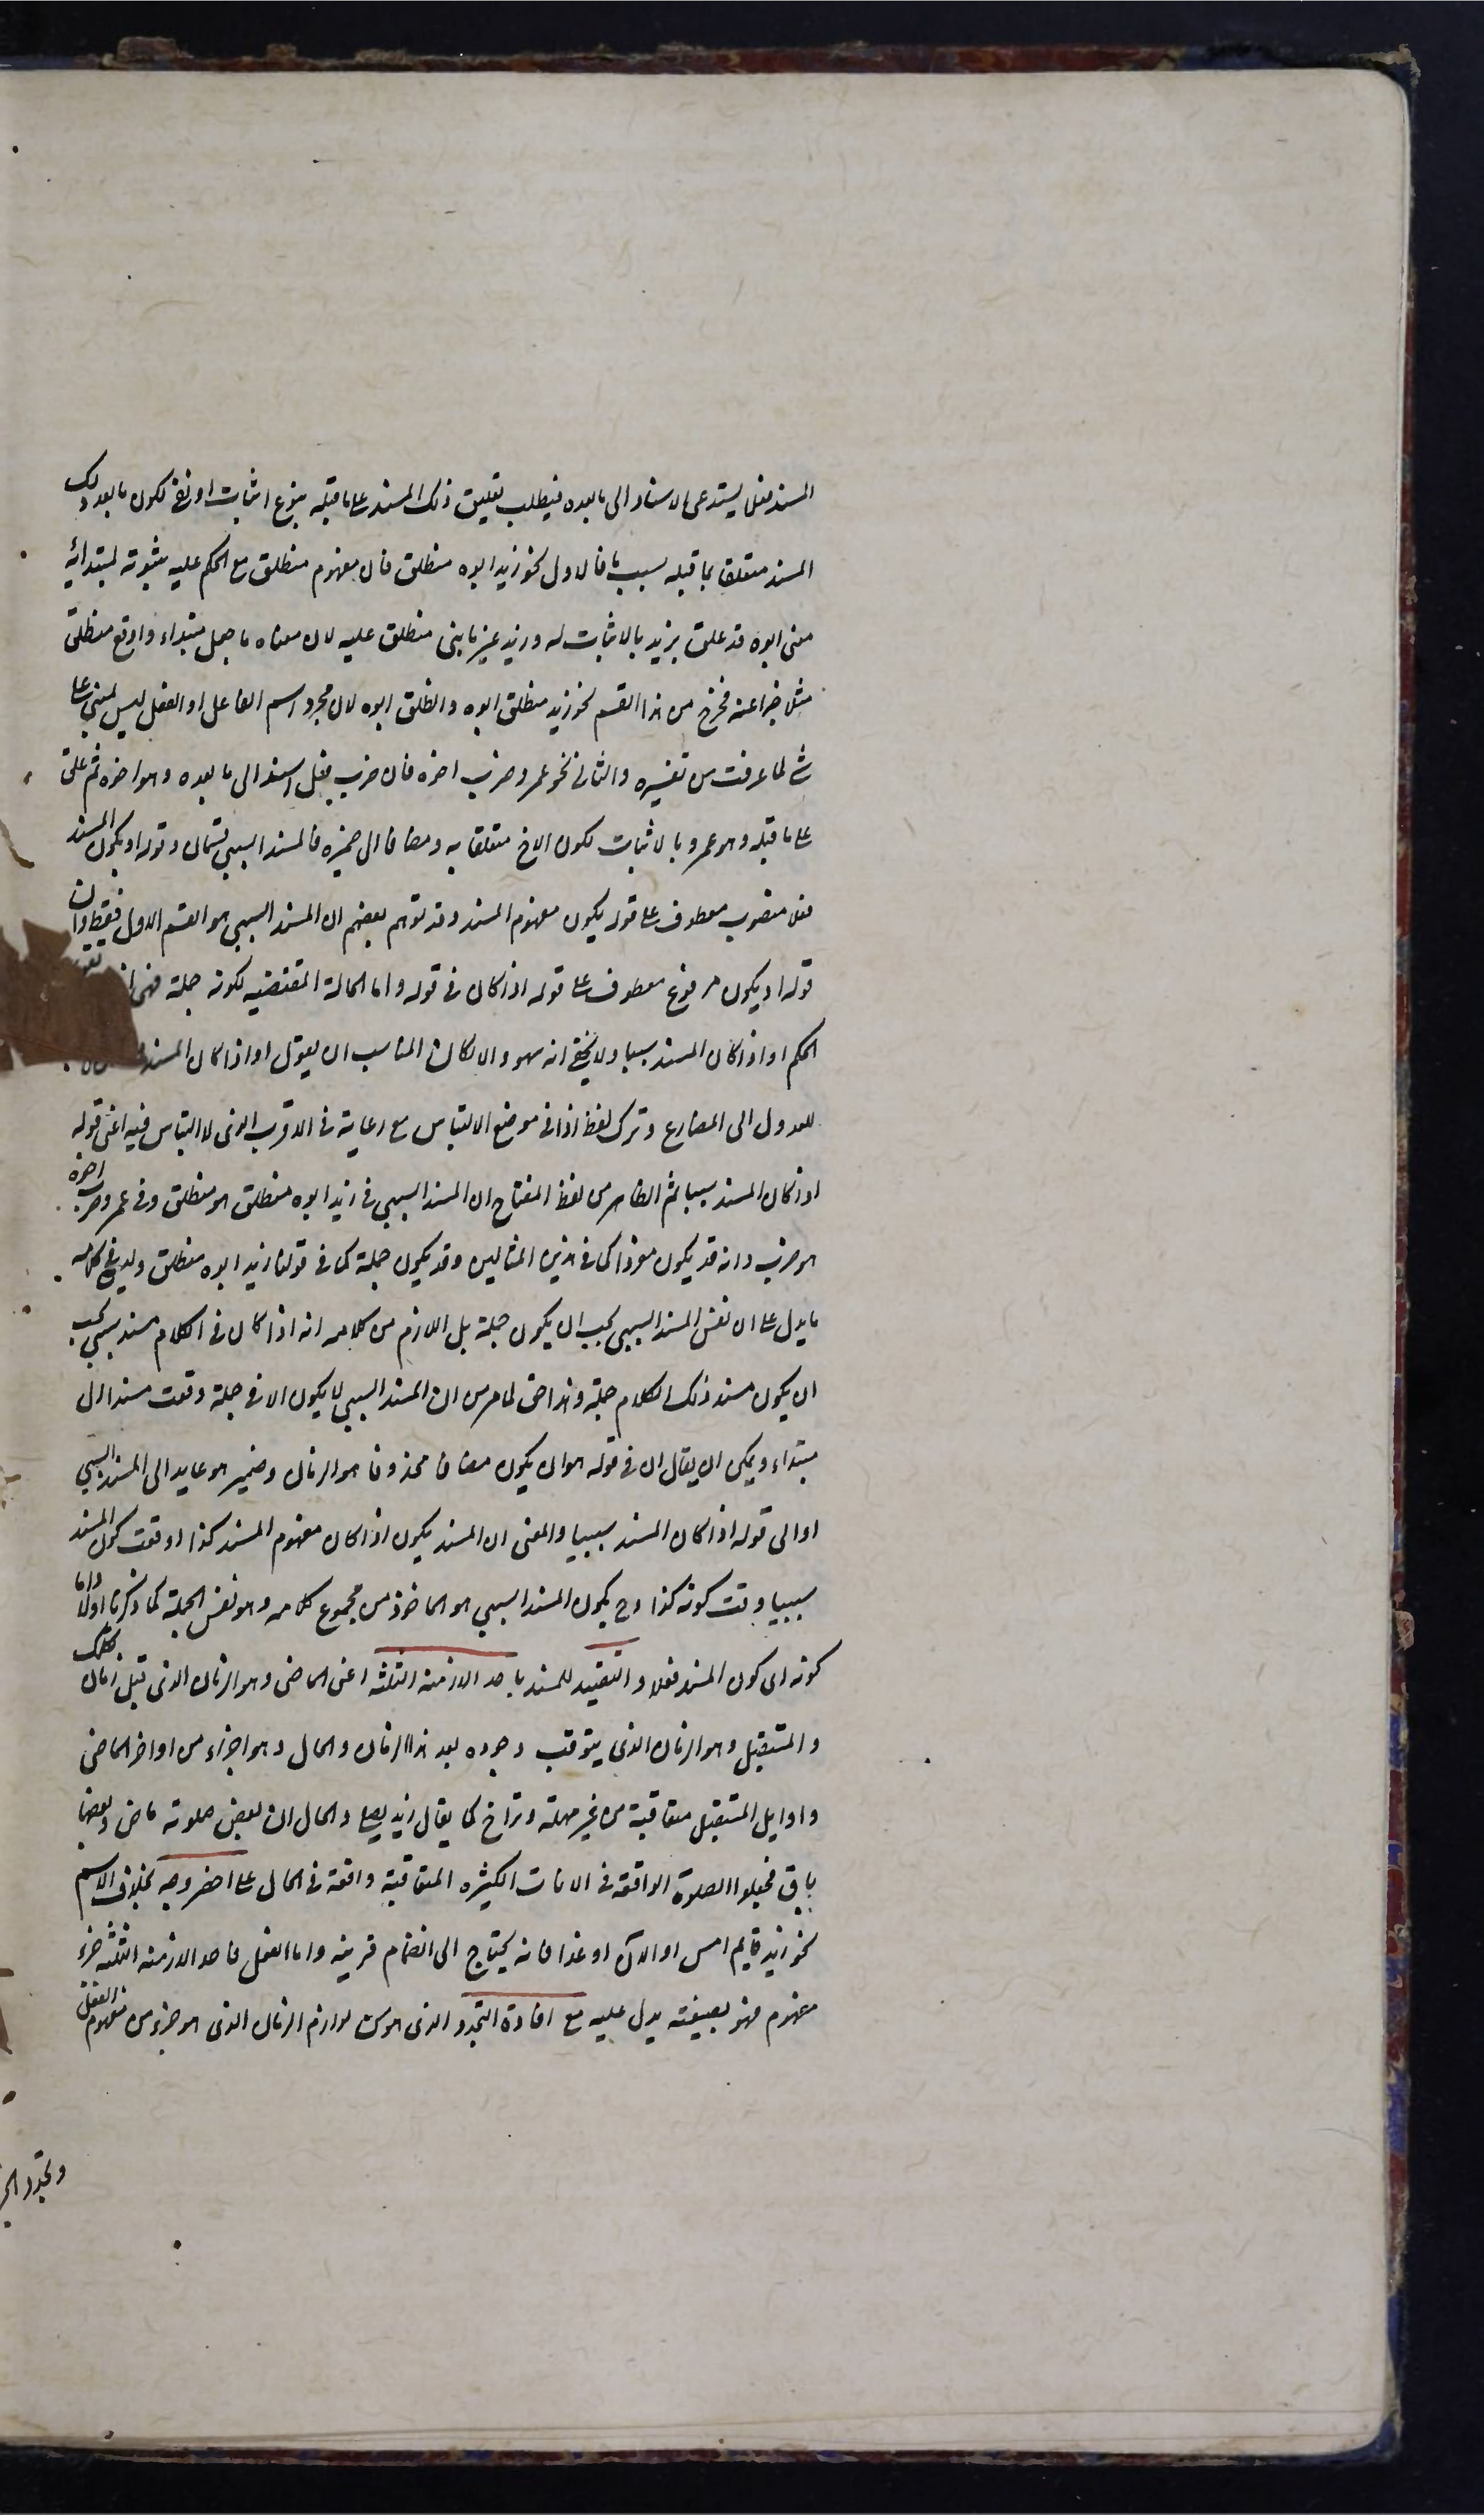 المسند فعل يستدعى الاسناد الى ما بعده فيطلب تعليق ذلك المسند على ما قبله بنوع اثبات او نفى لكون ما بعد ذلك
المسند متعلقا بما قبله بسبب ما فالاول نحو زيد ابوه منطلق فان مفهوم منطلق مع الحكم عليه بثبوته لمبتدائه
معنى ابوه قد علق بزيد بالاثبات له وزيد غير ما بنى منطلق عليه لان معناه ما جعل مبتداء واوقع منطلق
مثلا خبرا عنه فخرج من هذا القسم نحو زيد منطلق ابوه وانطلق ابوه لان مجرد اسم الفاعل او الفعل ليس لمبنى على
شئ لما عرفت من تفسيره والثانى نحو عمرو ضرب اخوه فان ضرب فعل اسند الى ما بعده وهو اخوه ثم علق
على ما قبله وهو عمرو بالاثبات لكون الاخ متعلقا به ومضافا الى ضميره فالمسند السببى قسمان وقوله او يكون المسند
فعلا منصوب معطوف على قوله يكون مفهوم المسند وقد توهم بعضهم ان المسند السببى هو القسم الاول فقط وان
قوله او يكون مرفوع معطوف على قوله اذا كان فى قوله واما الحالة المقتضيه لكونه جملة فهى
الحكم او اذا كان المسند سببيا ولا يخفى انه سهو والا لكان المناسب ان يقول او اذا كان المسند
للعدول الى المضارع وترك لفظ اذا فى موضع الالتباس مع رعايته فى الاقرب الذى لا التباس فيه اعنى قوله
اذا كان المسند سببيا ثم الظاهر من لفظ المفتاح ان المسند السببى فى زيد ابوه منطلق هو منطلق وفى عمرو ضرب اخوه
هو ضرب وانه قد يكون مفردا كما فى هذين المثالين وقد يكون جملة كما فى قولنا زيد ابوه منطلق وليس فى كلامه
ما يدل على ان نفس المسند السببى يجب ان يكون جملة بل اللازم من كلامه انه اذا كان فى الكلام مسند سببى يجب
ان يكون مسند ذلك الكلام جملة وهذا حق لما مر من ان المسند السببى لا يكون الا فى جملة وقعت مسندا الى
مبتداء ويمكن ان يقال ان فى قوله هو ان يكون مضافا محذوفا هو الزمان وضمير هو عايد الى المسند السببى
او الى قوله اذا كان المسند سببيا والمعنى ان المسند يكون اذا كان مفهوم المسند كذا او وقت كون المسند
سببيا وقت كونه كذا وح يكون المسند السببى هو الماخوذ من مجموع كلامه وهو نفس الجملة كما ذكرنا اولا واما
كونه اى كون المسند فعلا و فللتقييد للمسند باحد الازمنة الثلثه اعنى الماضى وهو الزمان الذى قبل زمان تكلمك
والمستقبل وهو الزمان الذى يترقب وجوده بعد هذا الزمان والحال وهو اجزاء من اواخر الماضى
واوايل المستقبل متعاقبة من غير مهلة وتراخ كما يقال زيد يصلى والحال ان بعض صلوته ماض وبعضها
باق فجعلوا الصلوة الواقعه فى الانات الكثيره المتعاقبة واقعة فى الحال على اخصر وجه بخلاف الاسم
نحو زيد قايم امس او الان او غدا فانه يحتاج الى انضمام قرينه واما الفعل فاحد الازمنه الثلثه جزء
مفهوم فهو بصيغته يدل عليه مع افادة التجدد الذى هو من لوازم الزمان الذى هو جزء من مفهوم الفعل